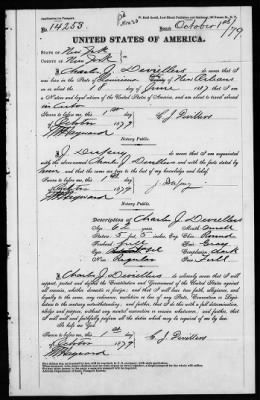 No. 14253.
Issued October 1st/79
UNITED STATES OF AMERICA.
STATE OF New York
COUNTY OF New York
I Charles J. Devillers do swear that I was
born in the State of Louisiana, City of New Orleans
on or about the 18 day of June 1817 that I am
a Native and loyal citizen of the United States of America, and am about to travel abroad
in Cuba
Sworn to before me, this 1st day
of October 1879
C J Devillers
Notary Public.
acquainted with the above-named Charles J Devillers and with the facts stated by
him, and that the same are true to the best of my knowledge and belief.
Sworn to before me, this 1st day
of October 1879
Notary Public.
Description of Charles J Devillers
Age, 62 years
Mouth, small
Stature, 5 ft. 5 inches, Eng.
Chin, Round
Forehead, full
Hair, Gray
Complexion, Dark
Nose, Regular
Face, Full
I, Charles J. Devillers do solemnly swear that I will
support, protect and defend the Constitution and Government of the United States against
all enemies, whether domestic or foreign; and that I will bear true faith, allegiance, and
loyalty to the same, any ordinance, resolution or law of any State, Convention or Legis-
lature to the contrary notwithstanding; and further, that I do this with a full determination,
pledge and purpose, without any mental reservation or evasion whatsoever; and further, that
I will well and faithfully perform all the duties which may be required of me by law.
So help me God.
Sworn to before me, this 1st day
of October 1879
C J Devillers
Notary Public.